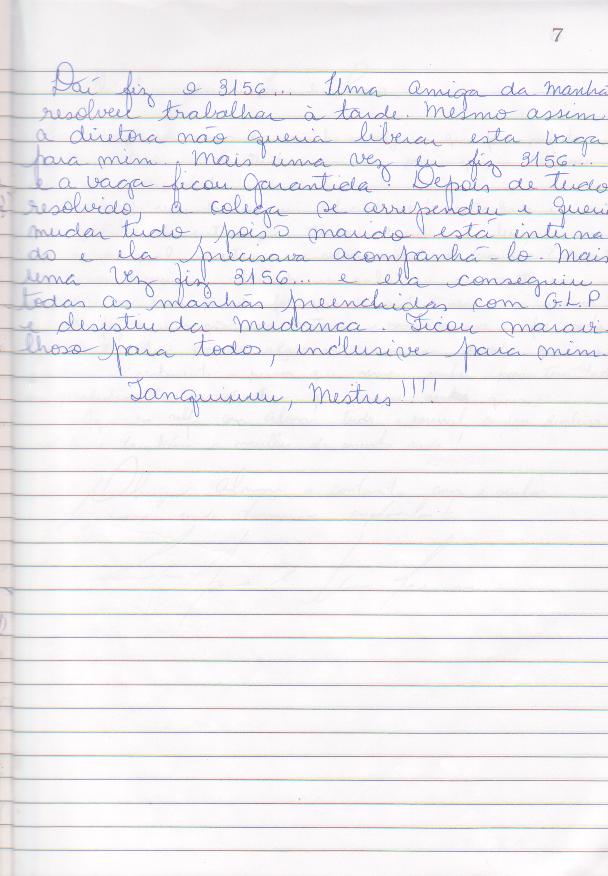 7
Daí fiz o 3156... Uma amiga da manhã
resolveu trabalhar à tarde. Mesmo assim
a diretora não queria liberar esta vaga
para mim. Mais uma vez eu fiz 3156...
e a vaga ficou garantida! Depois de tudo
resolvido, a colega se arrependeu e queri
mudar tudo, pois o marido está interna
do e ela precisava acompanhá-lo. Mais
uma vez fiz 3156... e ela conseguiu
todas as manhãs preenchidas com G.L.P
e desistiu da mudanca. Ficou maravi
lhoso para todos, inclusive para mim.
Tanquiuuu, Mestres!!!!